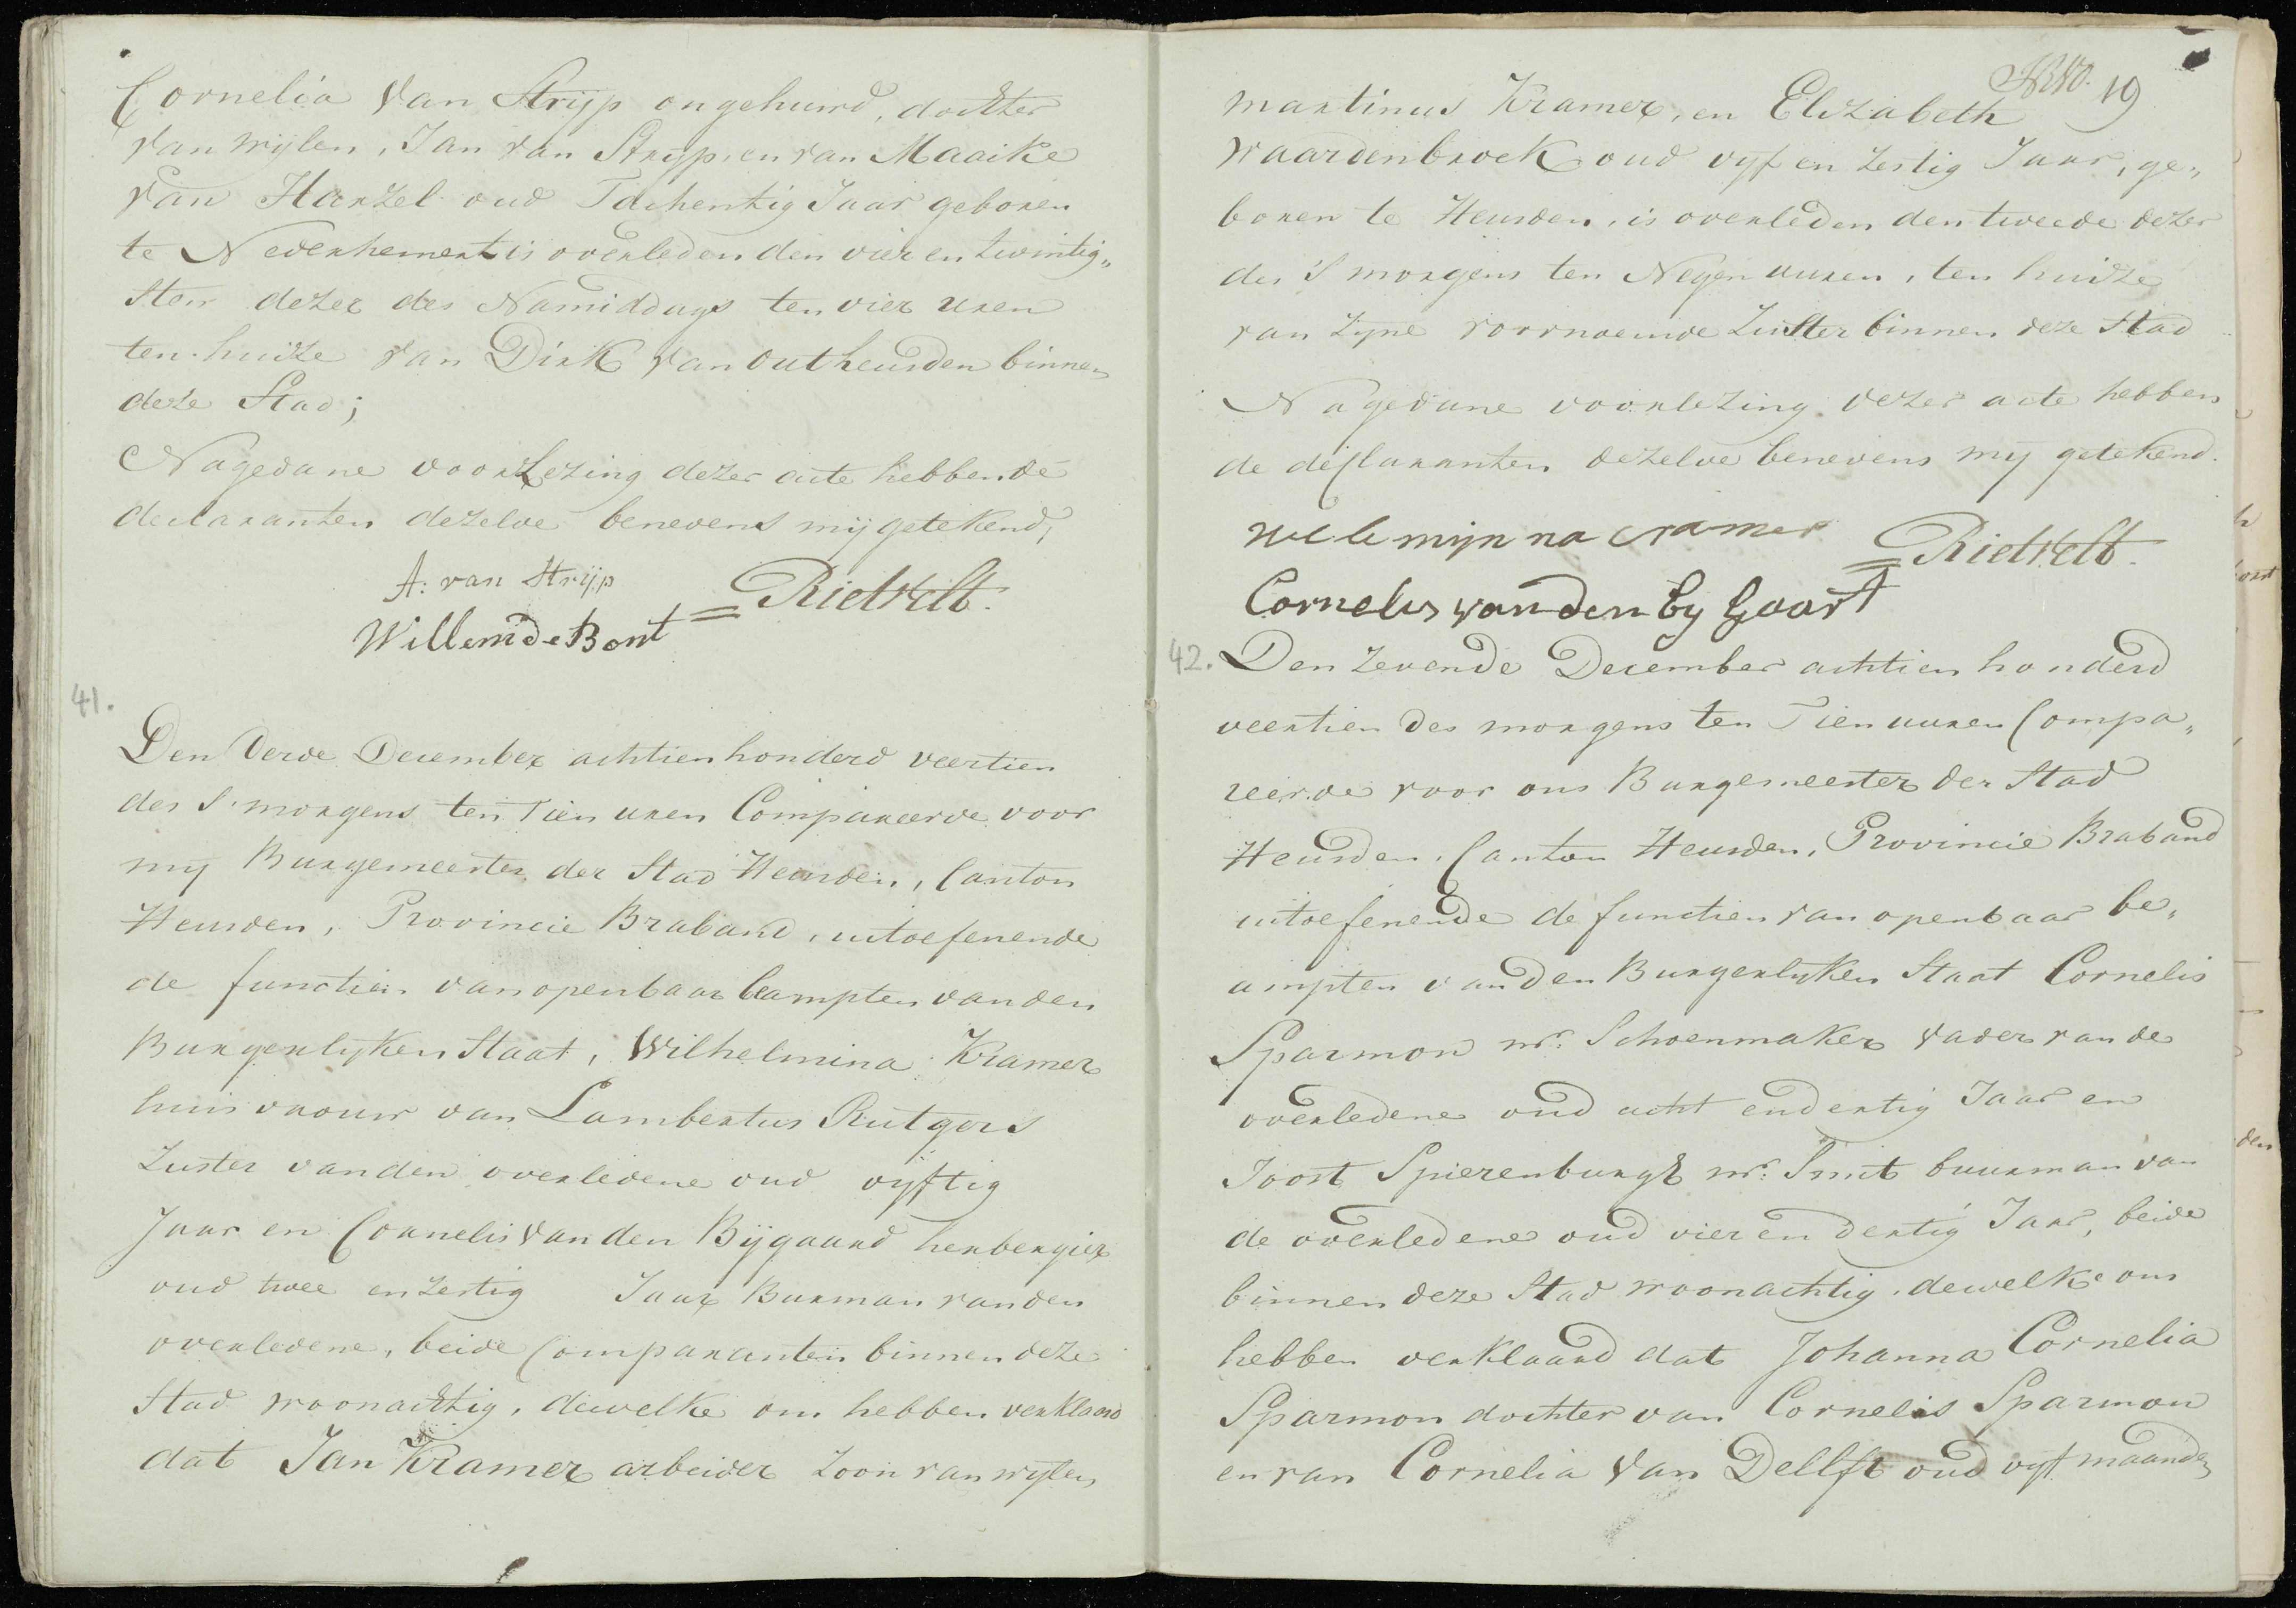 Cornelia van Strijp ongehuwd, dochter
van wijlen, Jan van Strijp, en van Maaike
van Harzel oud Tachentig Jaar geboren
te Nederhemert is overleden den vier en twintig„
sten dezer des Namiddags ten vier uren
ten huize van Dirk van Outheusden binnen
deze Stad;
Nagedane voorlezing dezer acte hebben de
declaranten dezelve benevens mij getekend,
A: van Strijp
Rietvelt.
Willem de Bont
41.
Den Derde December achtienhonderd veertien
des S'morgens ten Tien uren Compareerde voor
mij Burgemeester der Stad Heusden, Canton
Heusden, Provincie Braband, uitoefenende
de functien van openbaar beampten van den
Burgerlyken Staat, Wilhelmina Kramer
huisvrouw van Lambertus Rutgers
Zuster van den overledene oud vyftig
Jaar en Cornelis van den Bijgaard herbergier
oud twee en zestig Jaar Buurman van den
overledene, beide Comparanten binnen deze
Stad woonachtig, dewelke ons hebben verklaard
dat Jan Kramer arbeider Zoon van wijlen
19
martinus Kramer, en Elizabeth
Waardenbroek oud vyf en zestig Jaar, ge„
boren te Heusden, is overleden den tweede dezer
des S'morgens ten Negen uuren, ten huize
van zyne voornoemde Zuster binnen deze Stad
Nagedane voorlezing dezer acte hebben
de declaranten dezelve benevens mij getekend.
welemijnna cramer
Rietvelt.
Cornelis van den by gaart
42.
Den Zevende December achtien honderd
veertien des morgens ten Tien uuren Compa„
reerde voor ons Burgemeester der Stad
Heusden, Canton Heusden, Provincie Braband
uitoefenende de functien van openbaar be„
ampten van den Burgerlyken Staat Cornelis
Sparmon mr. Schoenmaker vader van de
overledene oud acht en dertig Jaar en
Joost Spierenburgh mr. Smit buurman van
de overledene oud vier en dertig Jaar, beide
binnen deze Stad woonachtig, dewelke ons
hebben verklaard dat Johanna Cornelia
Sparmon dochter van Cornelis Sparmon
en van Cornelia van Dellft oud vyf maanden